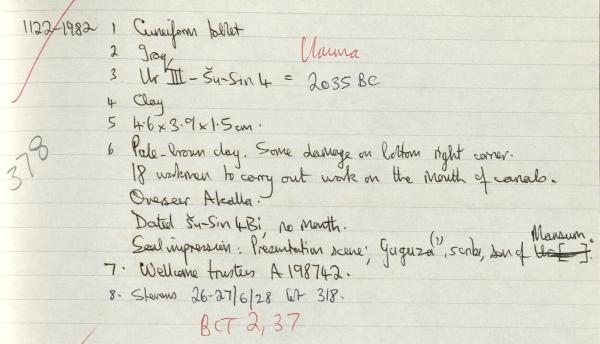 1122-1982 1 Cuneiform tablet
2 Iraq Umma
3 Ur III - Šu-Sin 4 = 2035 BC
4 Clay
5 4.6 x 3.9 x 1.5 cm.
6 Pale-brown clay. Some damage on bottom right corner.
18 workmen to carry out work on the mouth of canals.
Overseer Akalla.
Dated Šu-Sin 4Bi, no month.
Mansum.
Seal impression: Presentation scene; Guguza(?), scribe, son of
7. Wellcome trustees A 198742.
8. Stevens 26-27/6/28 lot 318.
BCT 2, 37
378